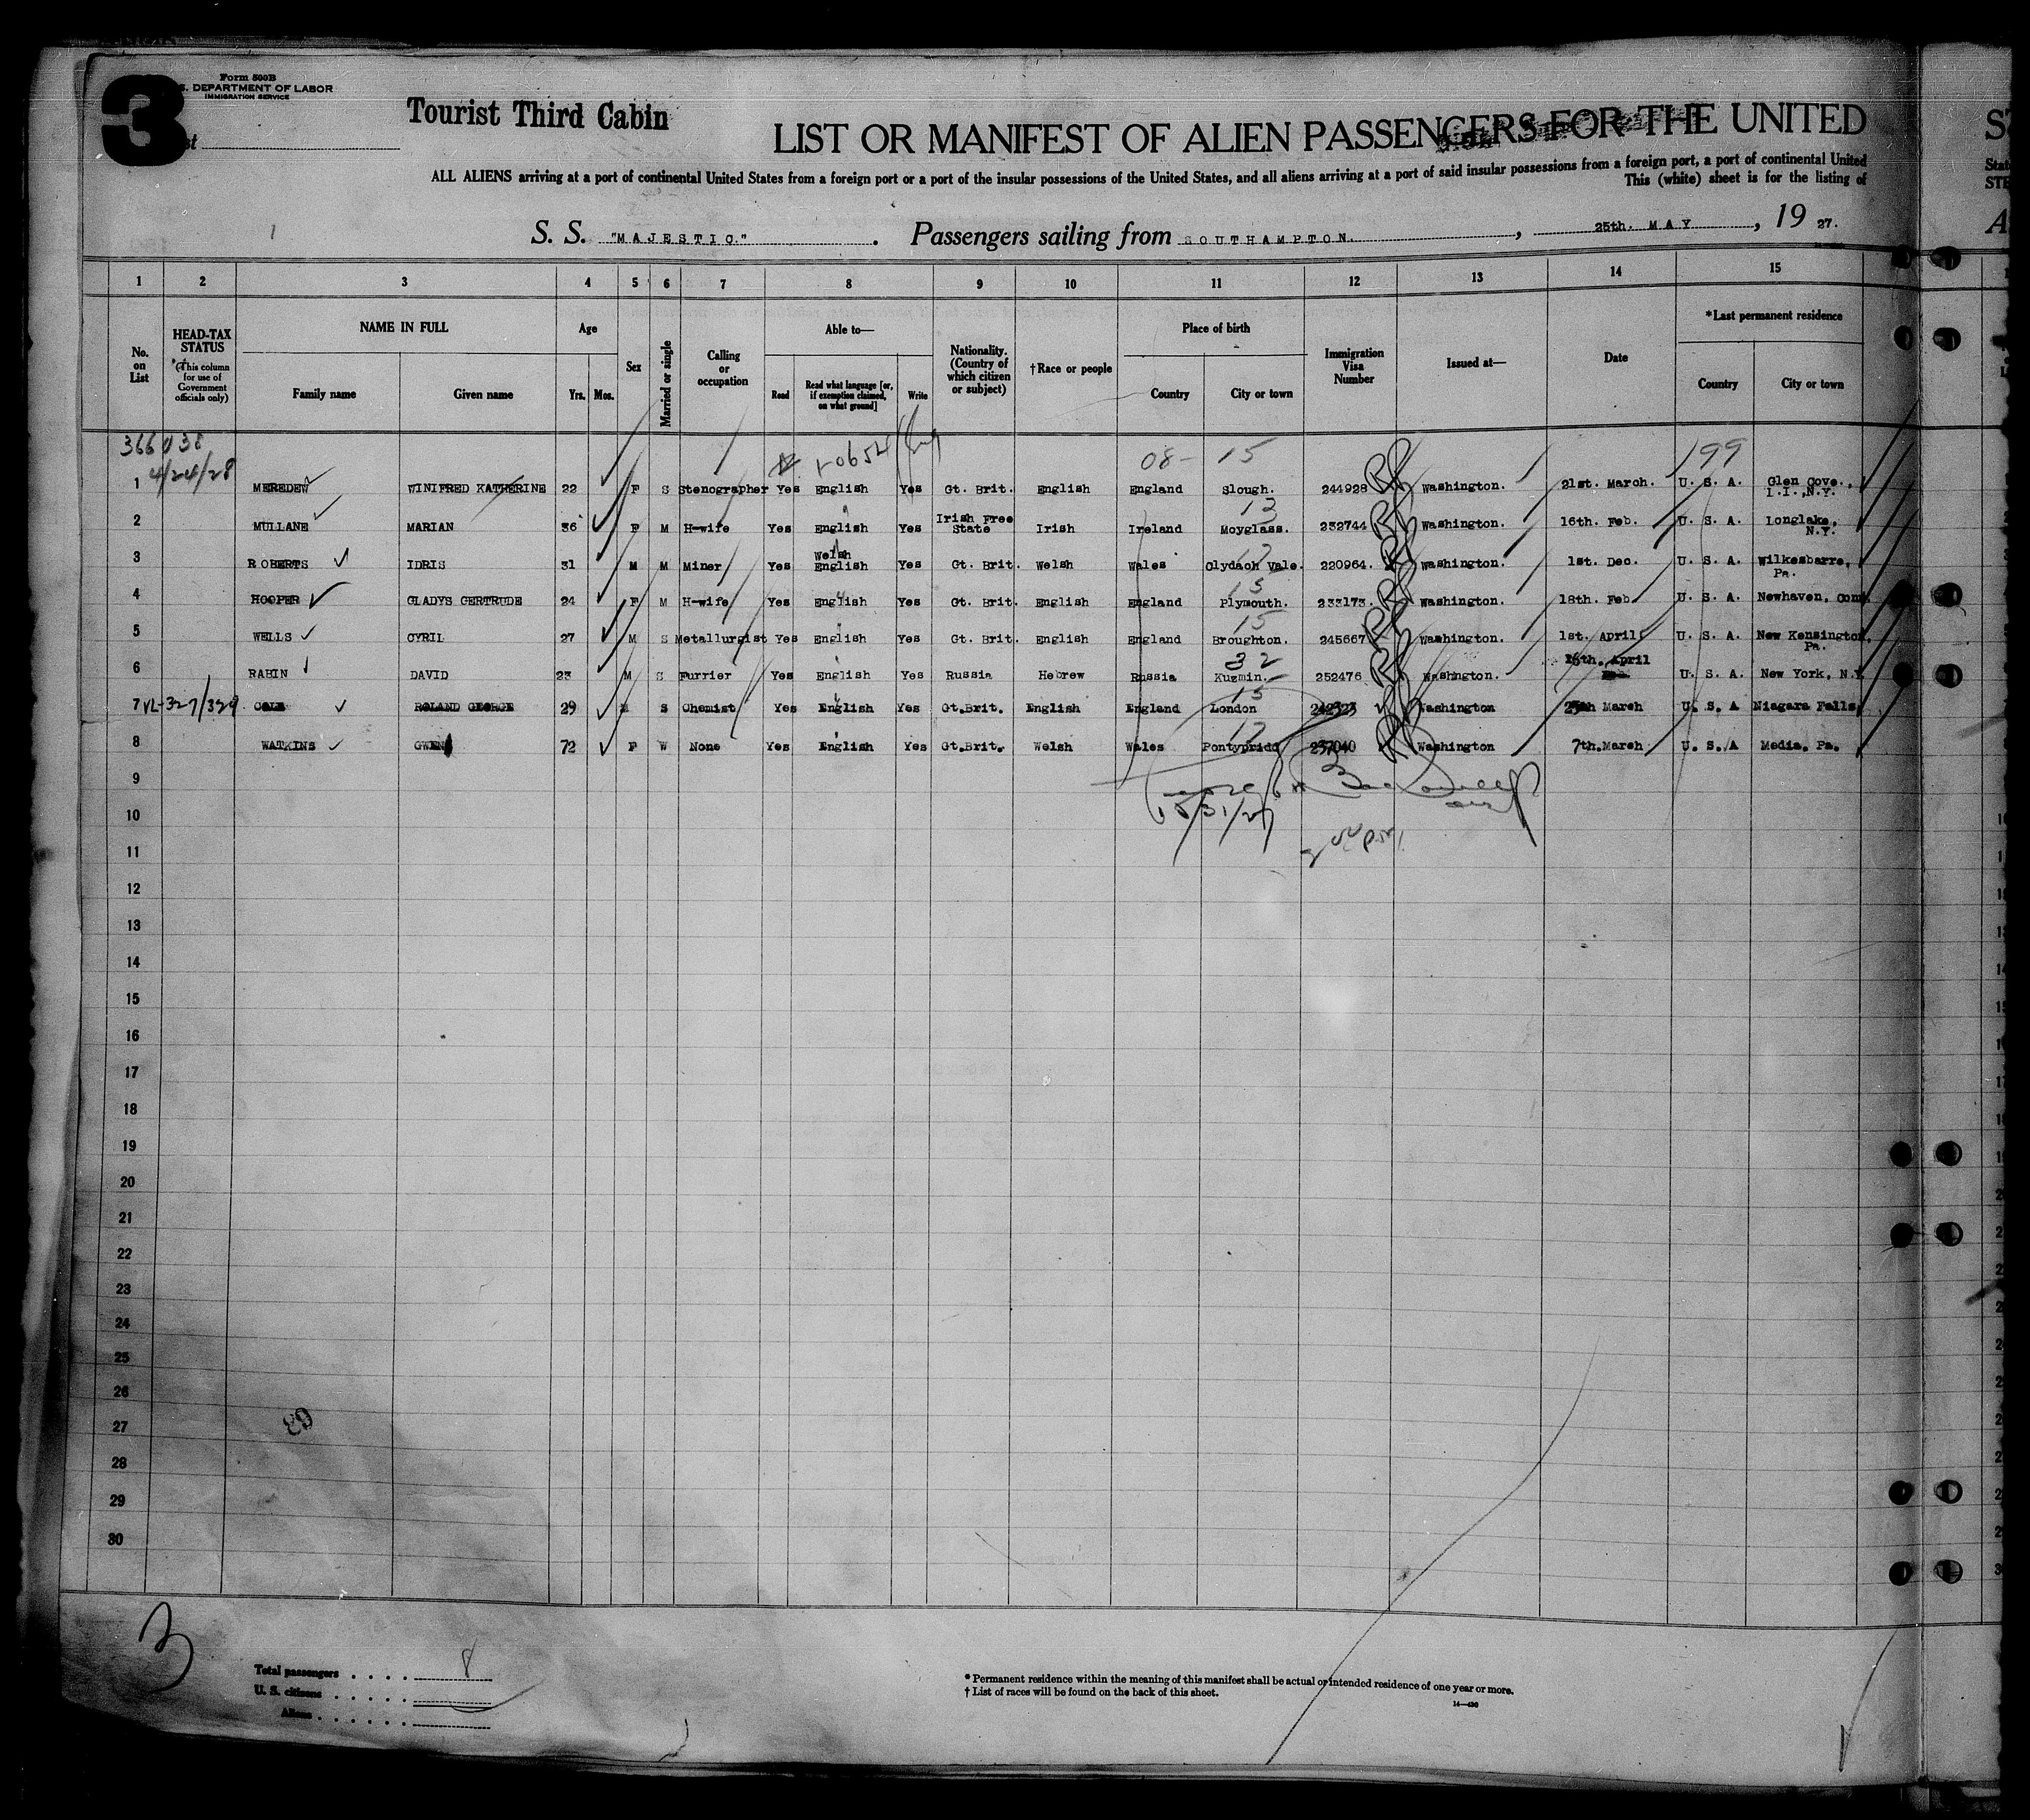 3
Form 500B
U.S. DEPARTMENT OF LABOR
IMMIGRATION SERVICE
Tourist Third Cabin
LIST OR MANIFEST OF ALIEN PASSENGERS FOR THE UNITED
ALL ALIENS arriving at a port of continental United States from a foreign port or a port of the insular possessions of the United States, and all aliens arriving at a port of said insular possessions from a foreign port, a port of continental United
This (white) sheet is for the listing of
S. S. "MAJESTIC." . Passengers sailing from SOUTHAMPTON. , 25th. MAY , 19 27.
1 2 3 4 5 6 7 8 9 10 11 12 13 14 15
No. on List
HEAD-TAX STATUS (This column for use of Government officials only)
NAME IN FULL
Family name Given name
Age
Yrs. Mos.
Sex
Married or single
Calling or occupation
Able to—
Read Read what language [or, if exemption claimed, on what ground] Write
Nationality. (Country of which citizen or subject)
†Race or people
Place of birth
Country City or town
Immigration Visa Number
Issued at—
Date
*Last permanent residence
Country City or town
366038
4/24/28
08- 15 199
1 MEREDEW WINIFRED KATHERINE 22 F S Stenographer Yes English Yes Gt. Brit. English England Slough. 244928 Washington. 21st. March. U. S. A. Glen Cove., L.I.,N.Y.
13
2 MULLANE MARIAN 36 F M H-wife Yes English Yes Irish Free State Irish Ireland Moyglass. 232744 Washington. 16th. Feb. U. S. A. Longlake, N.Y.
3 ROBERTS IDRIS 31 M M Miner Yes Welsh English Yes Gt. Brit. Welsh Wales Clydach Vale. 220964. Washington. 1st. Dec. U. S. A. Wilkesbarre, Pa.
15
4 HOOPER GLADYS GERTRUDE 24 F M H-wife Yes English Yes Gt. Brit. English England Plymouth. 233173. Washington. 18th. Feb. U. S. A. Newhaven, Conn.
15
5 WELLS CYRIL 27 M S Metallurgist Yes English Yes Gt. Brit. English England Broughton. 245667 Washington. 1st. April. U. S. A. New Kensington, Pa.
32
6 RABIN DAVID 23 M S Furrier Yes English Yes Russia Hebrew Russia Kuzmin. 252476 Washington. April U. S. A. New York, N.Y.
15
7 VL-327/329 COLE ROLAND GEORGE 29 M S Chemist Yes English Yes Gt.Brit. English England London 242323 Washington 25th March U. S. A Niagara Falls,
8 WATKINS GWEN 72 F W None Yes English Yes Gt.Brit. Welsh Wales Pontypridd 237040 Washington 7th.March U. S. A Media, Pa.
9
10
11
12
13
14
15
16
17
18
19
20
21
22
23
24
25
26
27
28
29
30
3
Total passengers . . . . 8
U. S. citizens . . . . .
Aliens . . . . . .
* Permanent residence within the meaning of this manifest shall be actual or intended residence of one year or more.
† List of races will be found on the back of this sheet.